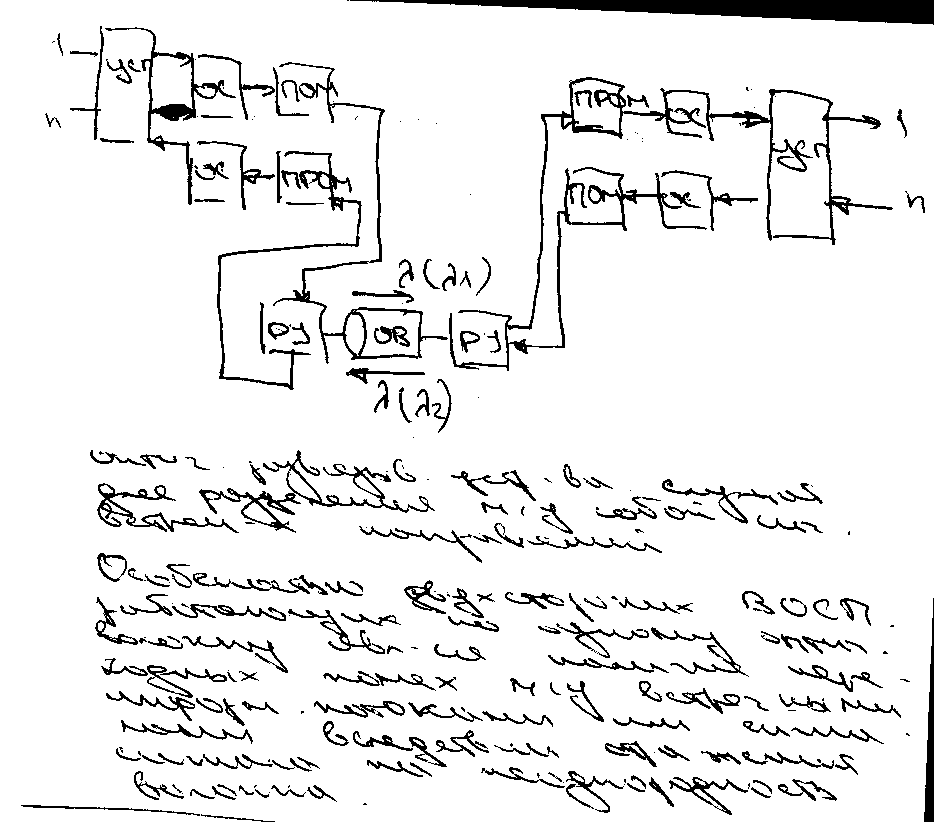 1
n
УСП
ОС
ПОМ
ОС
ПРОМ
ПРОМ
ОС
1
УСП
ПОМ
ОС
n
λ(λ1)
РУ
ОВ
РУ
λ(λ2)
оптич. развязыв. уст-ва служат
для разделения м/у собой сиг.
встреч-х направлений
Особенностью двухсторонних ВОСП
работающих по одному оптич.
волокну явл-ся наличие пере-
ходных помех м/у встречными
информ. потоками или сигна-
лами вследствии отражения
сигнала на неоднородность
волокна.